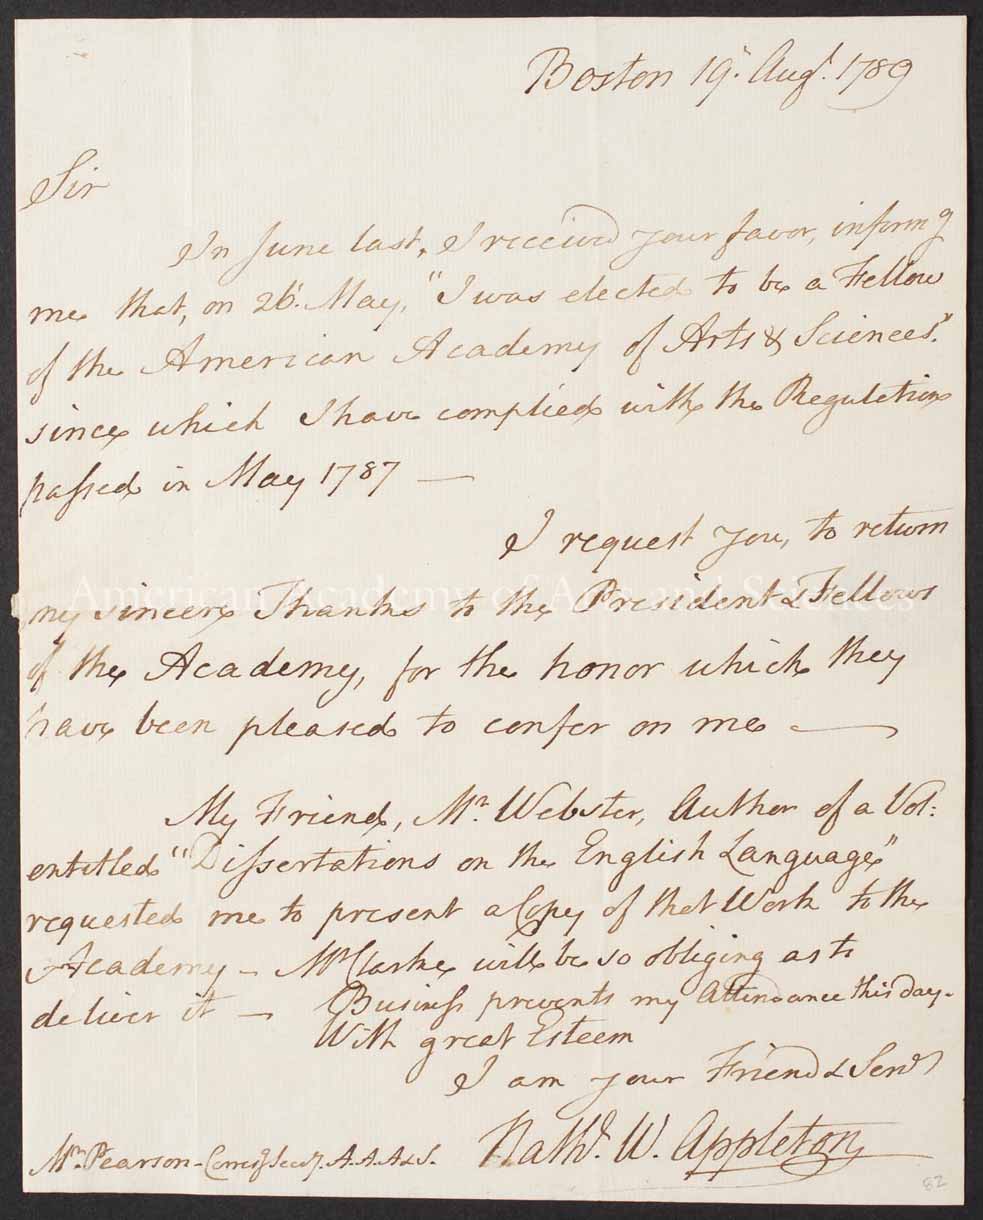 Boston 19. Augt. 1789
Sir
In June last, I received your favor, informg
me that, on 26. May, "I was elected to be a Fellow
of the American Academy of Arts & Sciences."
since which I have complied with the Regulations
passed in May 1787 —
I request you, to return
American Academy of Arts and Sciences
my sincere Thanks to the President & Fellows
of the Academy, for the honor which they
have been pleased to confer on me —
My Friend, Mr. Webster, Author of a Vol:
entitled "Dissertations on the English Language"
requested me to present a Copy of that Work to the
Academy — Mr Clarke will be so obliging as to
deliver it — Business prevents my Attendance this day.
With great Esteem
I am your Friend & Servt
Nathl. W. Appleton
Mr. Pearson - Corresg Secy. A.A.A&S.
82